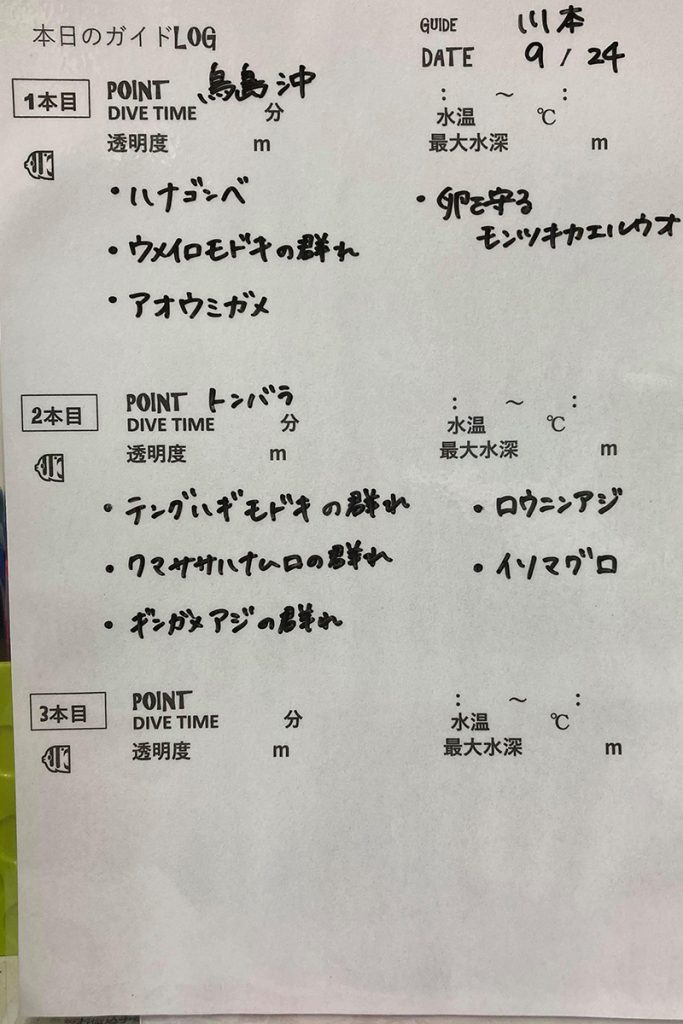 本日のガイドLOG
GUIDE 川本
DATE 9 / 24
1本目 POINT 鳥島沖 : ～ :
DIVE TIME 分 水温 ℃
透明度 m 最大水深 m
・ハナゴンベ ・卵を守る
モンツキカエルウオ
・ウメイロモドキの群れ
・アオウミガメ
2本目 POINT トンバラ : ～ :
DIVE TIME 分 水温 ℃
透明度 m 最大水深 m
・テングハギモドキの群れ ・ロウニンアジ
・クマササハナムロの群れ ・イソマグロ
・ギンガメアジの群れ
3本目 POINT : ～ :
DIVE TIME 分 水温 ℃
透明度 m 最大水深 m